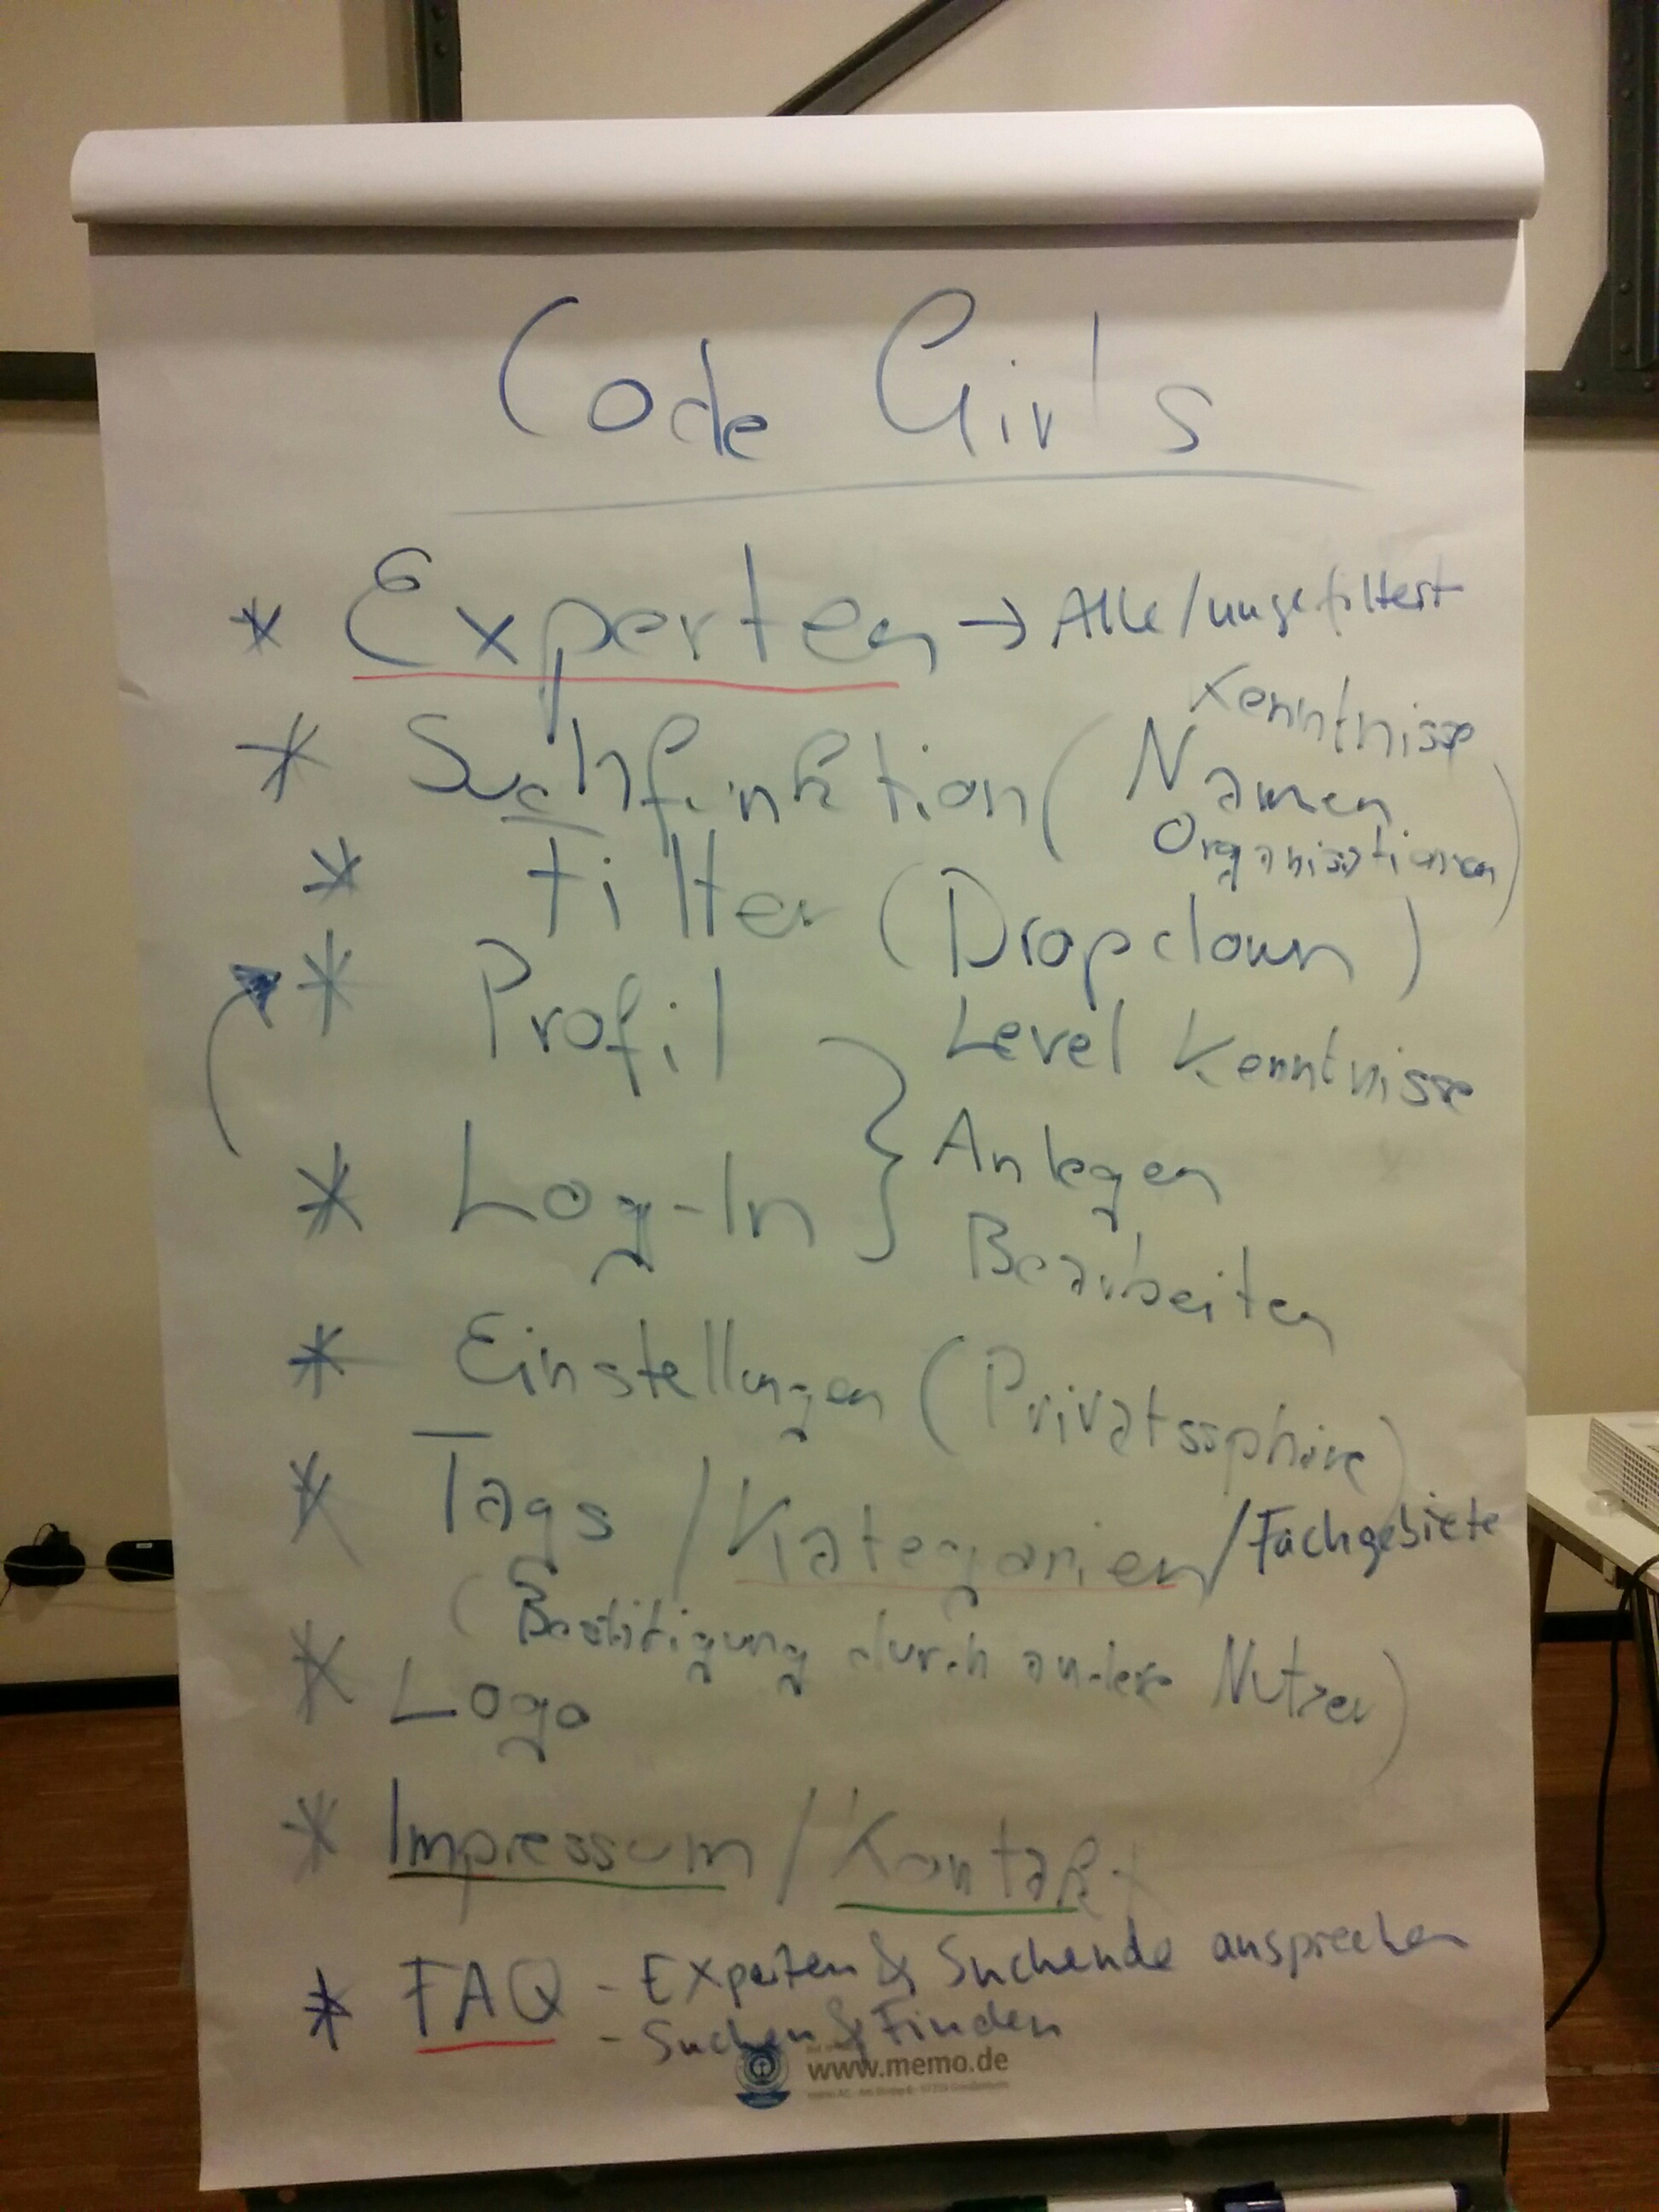 Code Girls
* Experten → Alle/ungefiltert
* Suchfunktion (Kenntnisse
Namen
Organisationen)
* Filter (Dropdown)
* Profil Level Kenntnisse
* Log-In } Anlegen
Bearbeiten
* Einstellungen (Privatssphäre)
* Tags / Kategorien / Fachgebiete
(Bestätigung durch andere Nutzer)
* Logo
* Impressum / Kontakt
* FAQ - Experten & Suchende ansprechen
- Suchen & Finden
www.memo.de